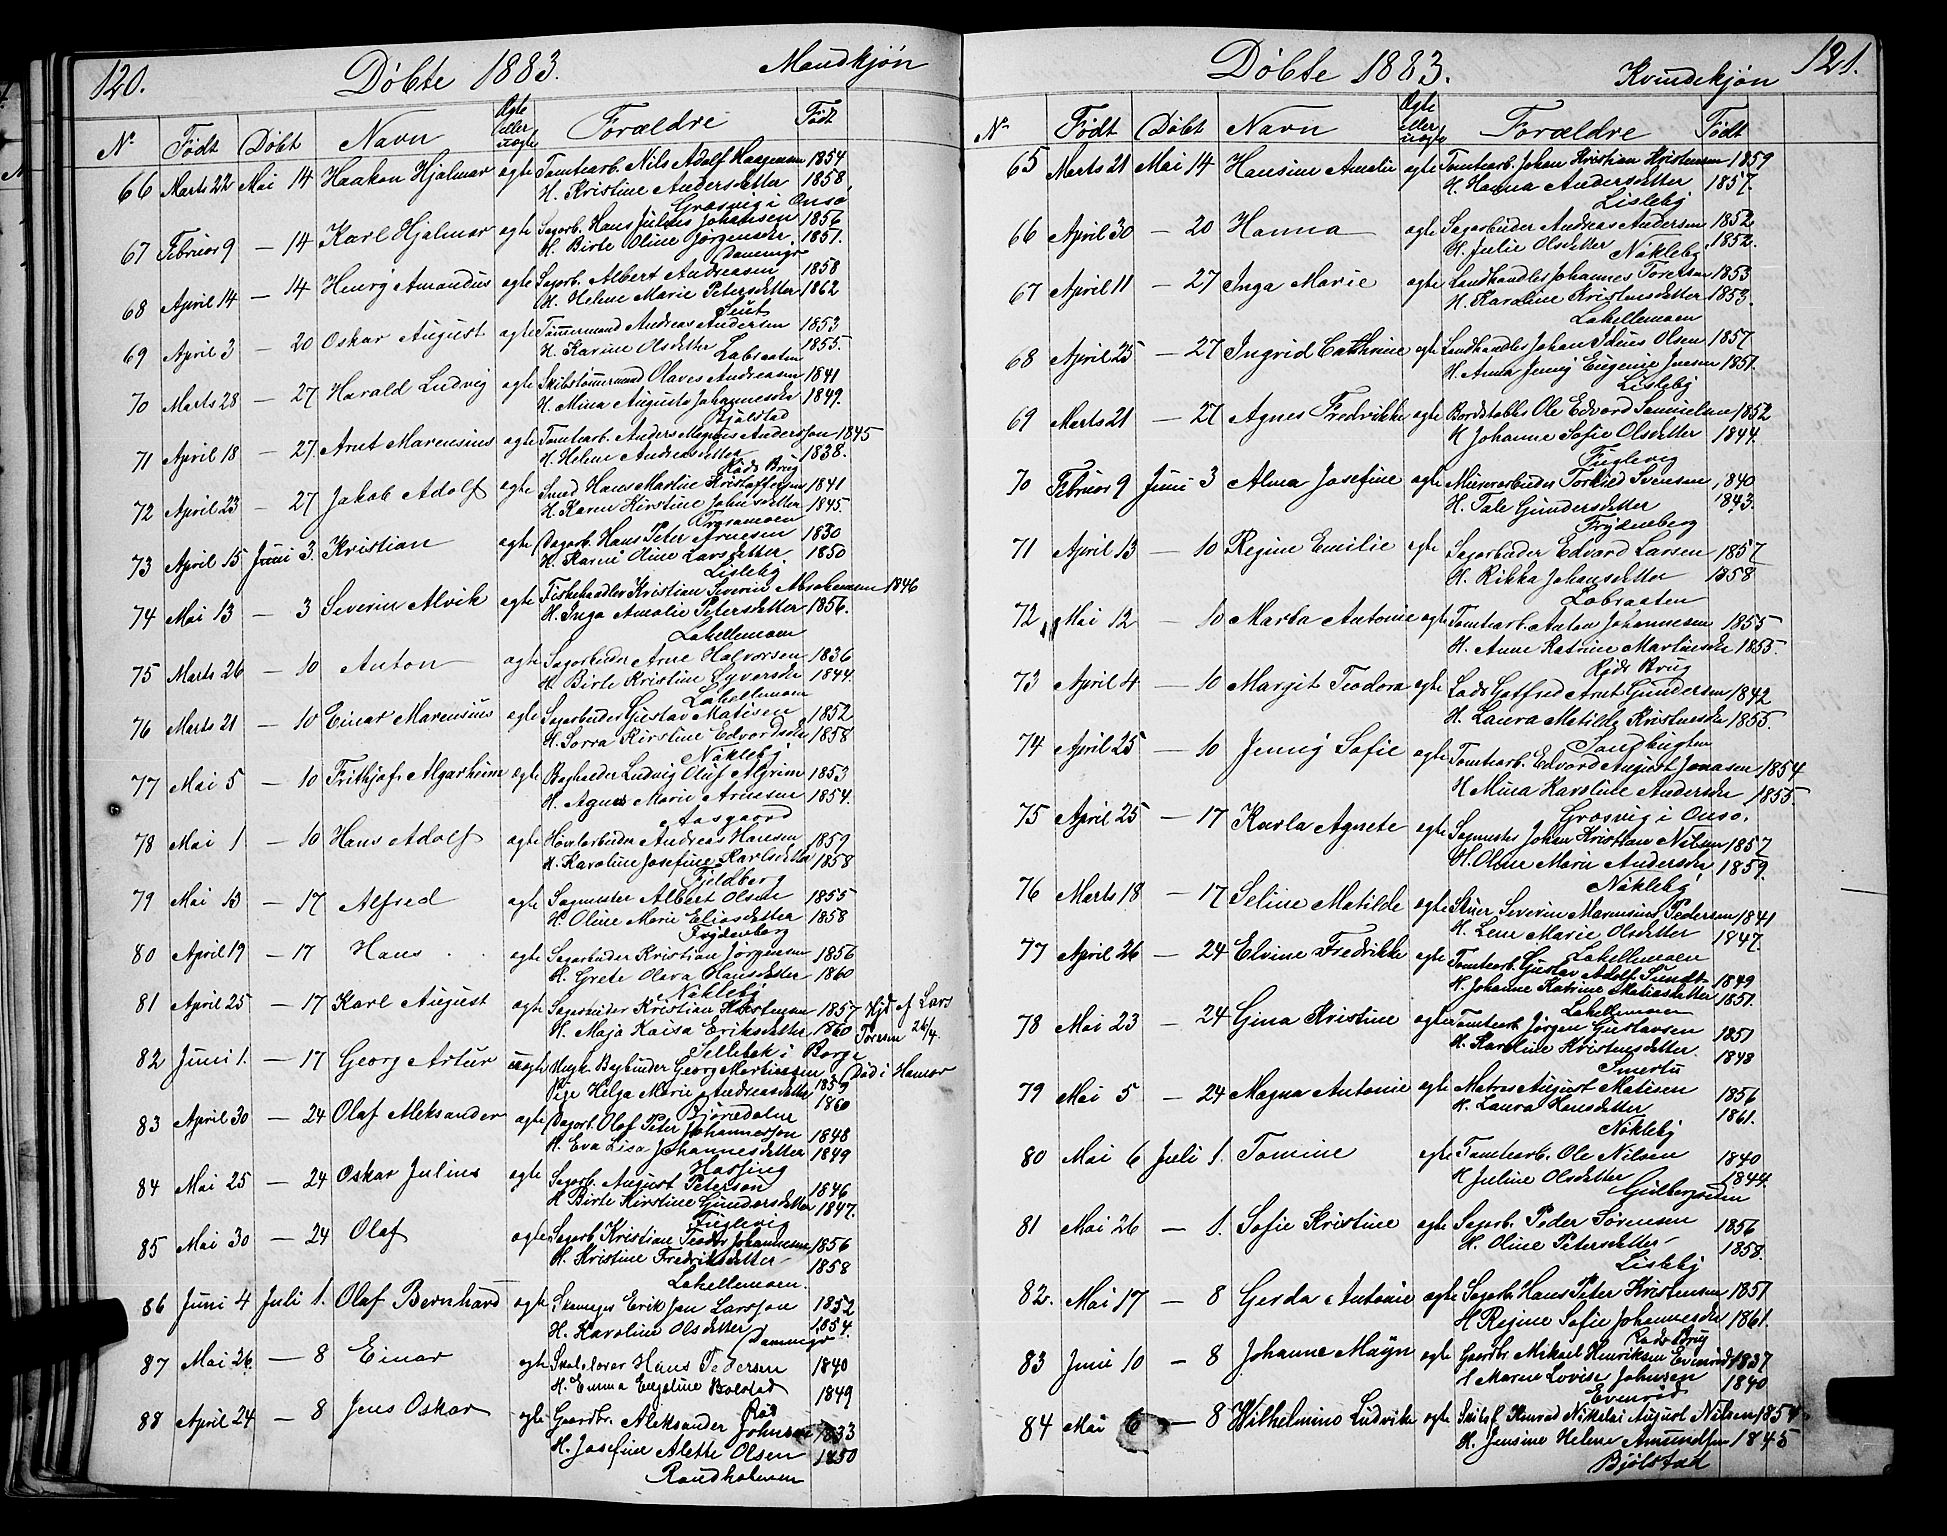 120. Døbte 1883. Mandkjøn
No Født Døbt Navn Ægte eller uægte Forældre Født
66 Marts 22 Mai 14 Haakon Hjalmar ægte Tomtearb. Nils Adolf Haagensen 1854
H. Kristine Andersdatter 1858
Græsvig i Onsø
67 Februar 9 — 14 Karl Hjalmar ægte Sagarb. Hans Julius Johansen 1856
H. Birte Oline Jørgensdtr. 1851.
68 April 14 — 14 Henry Amandus ægte Sagarb. Albert Andreasen 1858
H. Helene Marie Petersdatter 1862
69 April 3 — 20 Oskar August ægte Tømmermand Andreas Andersen 1853
H. Karine Olsdatter 1855.
Labraaten
70 Marts 28 — 27 Harald Ludvig ægte Skibstømmermand Olaves Andreasen 1841
H. Mina Augusta Johannesdtr 1849.
Bjølstad
71 April 18 — 27 Arnt Marensius ægte Tomtearb. Anders Magnus Andersson 1845
H. Helene Andreasdatter 1838.
Røds Brug
72 April 23 — 27 Jakob Adolf ægte Smed Hans Martin Kristoffersen 1841
H. Karen Kirstine Johnsdatter 1845.
73 April 15 Juni 3. Kristian ægte Dagarb. Hans Peter Arnesen 1830
H. Karen Oline Larsdatter 1850
Lisleby
74 Mai 13 — 3 Severin Alvik ægte Fiskehandler Kristian Severin Abrahamsen 1846
H. Inga Amalie Petersdatter 1856.
Lahellemoen
75 Marts 26 — 10 Anton ægte Sagarbeider Arne Halvorsen 1836
H. Birte Kristine Syversdtr 1844.
Lahellemoen
76 Marts 21 — 10 Einar Marensius ægte Sagarbeider Gustav Matisen 1852
H. Sorra Kirstine Edvardsdtr 1858
Nøkleby
77 Mai 5 — 10 Frithjof Algarheim ægte Bogholder Ludvig Oluf Algrim 1853
H. Agnes Marie Arnesen 1854.
Aasgaard
78 Mai 1 — 10 Hans Adolf ægte Høvlarbeider Andreas Hansen 1859
H. Karoline Josefine Karlsdatter 1858
Fjeldberg
79 Mai 13 — 17 Alfred ægte Sagmester Albert Olsen 1855
H. Oline Marie Eliasdatter 1858
Frydenberg
80 April 19 — 17 Hans ægte Sagarbeider Kristian Jørgensen 1856
H. Grete Olava Hansdatter 1860
Nøkleby
81 April 25 — 17 Karl August ægte Sagarbeider Kristian Kristensen 1857 Hjd. af Lars
H. Maja Kaisa Eriksdatter 1860 Toresen 26/4.
Sellebak i Borge
82 Juni 1. — 17 Georg Artur uægte Ungk. Bagbinder Georg Martinssen 1859 Død i Hamar
Pige Helga Marie Andreasdatter 1860
83 April 30 — 24 Olaf Aleksander ægte Dagarb. Olaf Peter Johannesson 1848
H. Eva Lisa Johannesdatter 1849
Hassing
84 Mai 25 — 24 Oskar Julius ægte Sagarb. August Peterson 1846
H. Birte Kirstine Gundersdatter 1847.
Fuglevig
85 Mai 30 — 24 Olaf ægte Sagarb. Kristian Teodor Johannesen 1856
H. Kristine Fredriksdatter 1858
Lahellemoen.
86 Juni 4 Juli 1. Olaf Bernhard ægte Skomager Erik Jan Larsson 1852
H. Karoline Olsdatter 1854.
87 Mai 26. — 8 Einar ægte Hans Pedersen 1840
H. Emma Engeline Bolstad 1849
Rød
88 April 24 — 8 Jens Oskar ægte Gaardbr. Aleksander Johnsen 1833
H. Josefine Alette Olsen 1850
Randholmen
Døbte 1883. Kvindekjøn 121.
No Født Døbt Navn Ægte eller uægte Forældre Født
65 Marts 21 Mai 14 Hansine Amalie ægte Tomtearb. Johan Kristian Kristensen 1859
H. Hanna Andersdatter 1857.
Lisleby
66 April 30 — 20 Hanna ægte Sagarbeider Andreas Andersen 1852
H. Julie Olsdatter 1852.
Nøkleby
67 April 11 — 27 Inga Marie ægte Landhandler Johannes Toresen 1853
H. Karoline Kristensdatter 1853.
Lahellemoen
68 April 25 — 27 Ingrid Cathrine ægte Landhandler Johan Julius Olsen 1857
H. Anna Jenny Eugenie Jensen 1851.
Lisleby
69 Marts 21 — 27 Agnes Fredrikke ægte Bordstabler Ole Edvard Samuelsen 1852
H Johanne Sofie Olsdatter 1844.
Fuglevig
70 Februar 9 Juni 3 Alma Josefine ægte Murerarbeider Torkild Svensen 1840
H. Tale Gundersdatter 1843.
Frydenberg
71 April 13 — 10 Regine Emilie ægte Sagarbeider Edvard Larsen 1857
H. Rikka Johansdatter 1858
Labraaten
72 Mai 12 — 10 Marta Antonie ægte Tomtearb. Anton Johannesen 1855
H. Anne Katrine Martinsdtr 1855.
Røds Brug
73 April 4 — 10 Margit Teodora ægte Lods Gotfred Arnt Gundersen 1842
H. Laura Matilde Kristensdtr 1855.
Sandbugten
74 April 25 — 10 Jenny Sofie ægte Tomtearb. Edvard August Jonasen 1854
H Mina Karoline Andersdtr 1855.
Græsvig i Onsø.
75 April 25 — 17 Karla Agnete ægte Sagmester Johan Kristian Nilsen 1857
H. Oline Marie Andersdtr 1859.
Nøkleby
76 Marts 18 — 17 Seline Matilde ægte Stuer Severin Marensius Pedersen 1841
H. Lene Marie Olsdatter 1847.
Lahellemoen
77 April 26 — 24 Elvine Fredrikke ægte Tomtearb. Gustav Adolf Sundt 1849
H. Johanne Katrine Matiasdatter 1851.
Lahellemoen
78 Mai 23 — 24 Gina Kristine ægte Tomtearb. Jørgen Gustavsen 1851
H. Karoline Kristensdatter 1848
Smertu
79 Mai 5 — 24 Magna Antonie ægte Matros August Matisen 1856
H. Laura Hansdatter 1861.
Nøkleby
80 Mai 6 Juli 1. Tomine ægte Tomtearb. Ole Nilsen 1840
H Juline Olsdatter 1844.
81 Mai 26 — 1. Sofie Kristine ægte Sagarb. Peder Sørensen 1856
H. Oline Petersdatter 1858.
Lisleby
82. Mai 17 — 8 Gerda Antonie ægte Sagarb. Hans Peter Kristensen 1851
H Regine Sofie Johannesdtr 1861.
Røds Brug
83 Juni 10 — 8 Johanne Magn ægte Gaardbr. Mikael Henriksen Evenrød 1837
H Maren Lovise Johnsen 1840
Evenrød
84 Mai 6 — 8 Wilhelmine Ludvikke ægte Skibsf. Konrad Nikolai August Nilsen 1854
H. Jensine Helene Amundsen 1845
Bjølstad